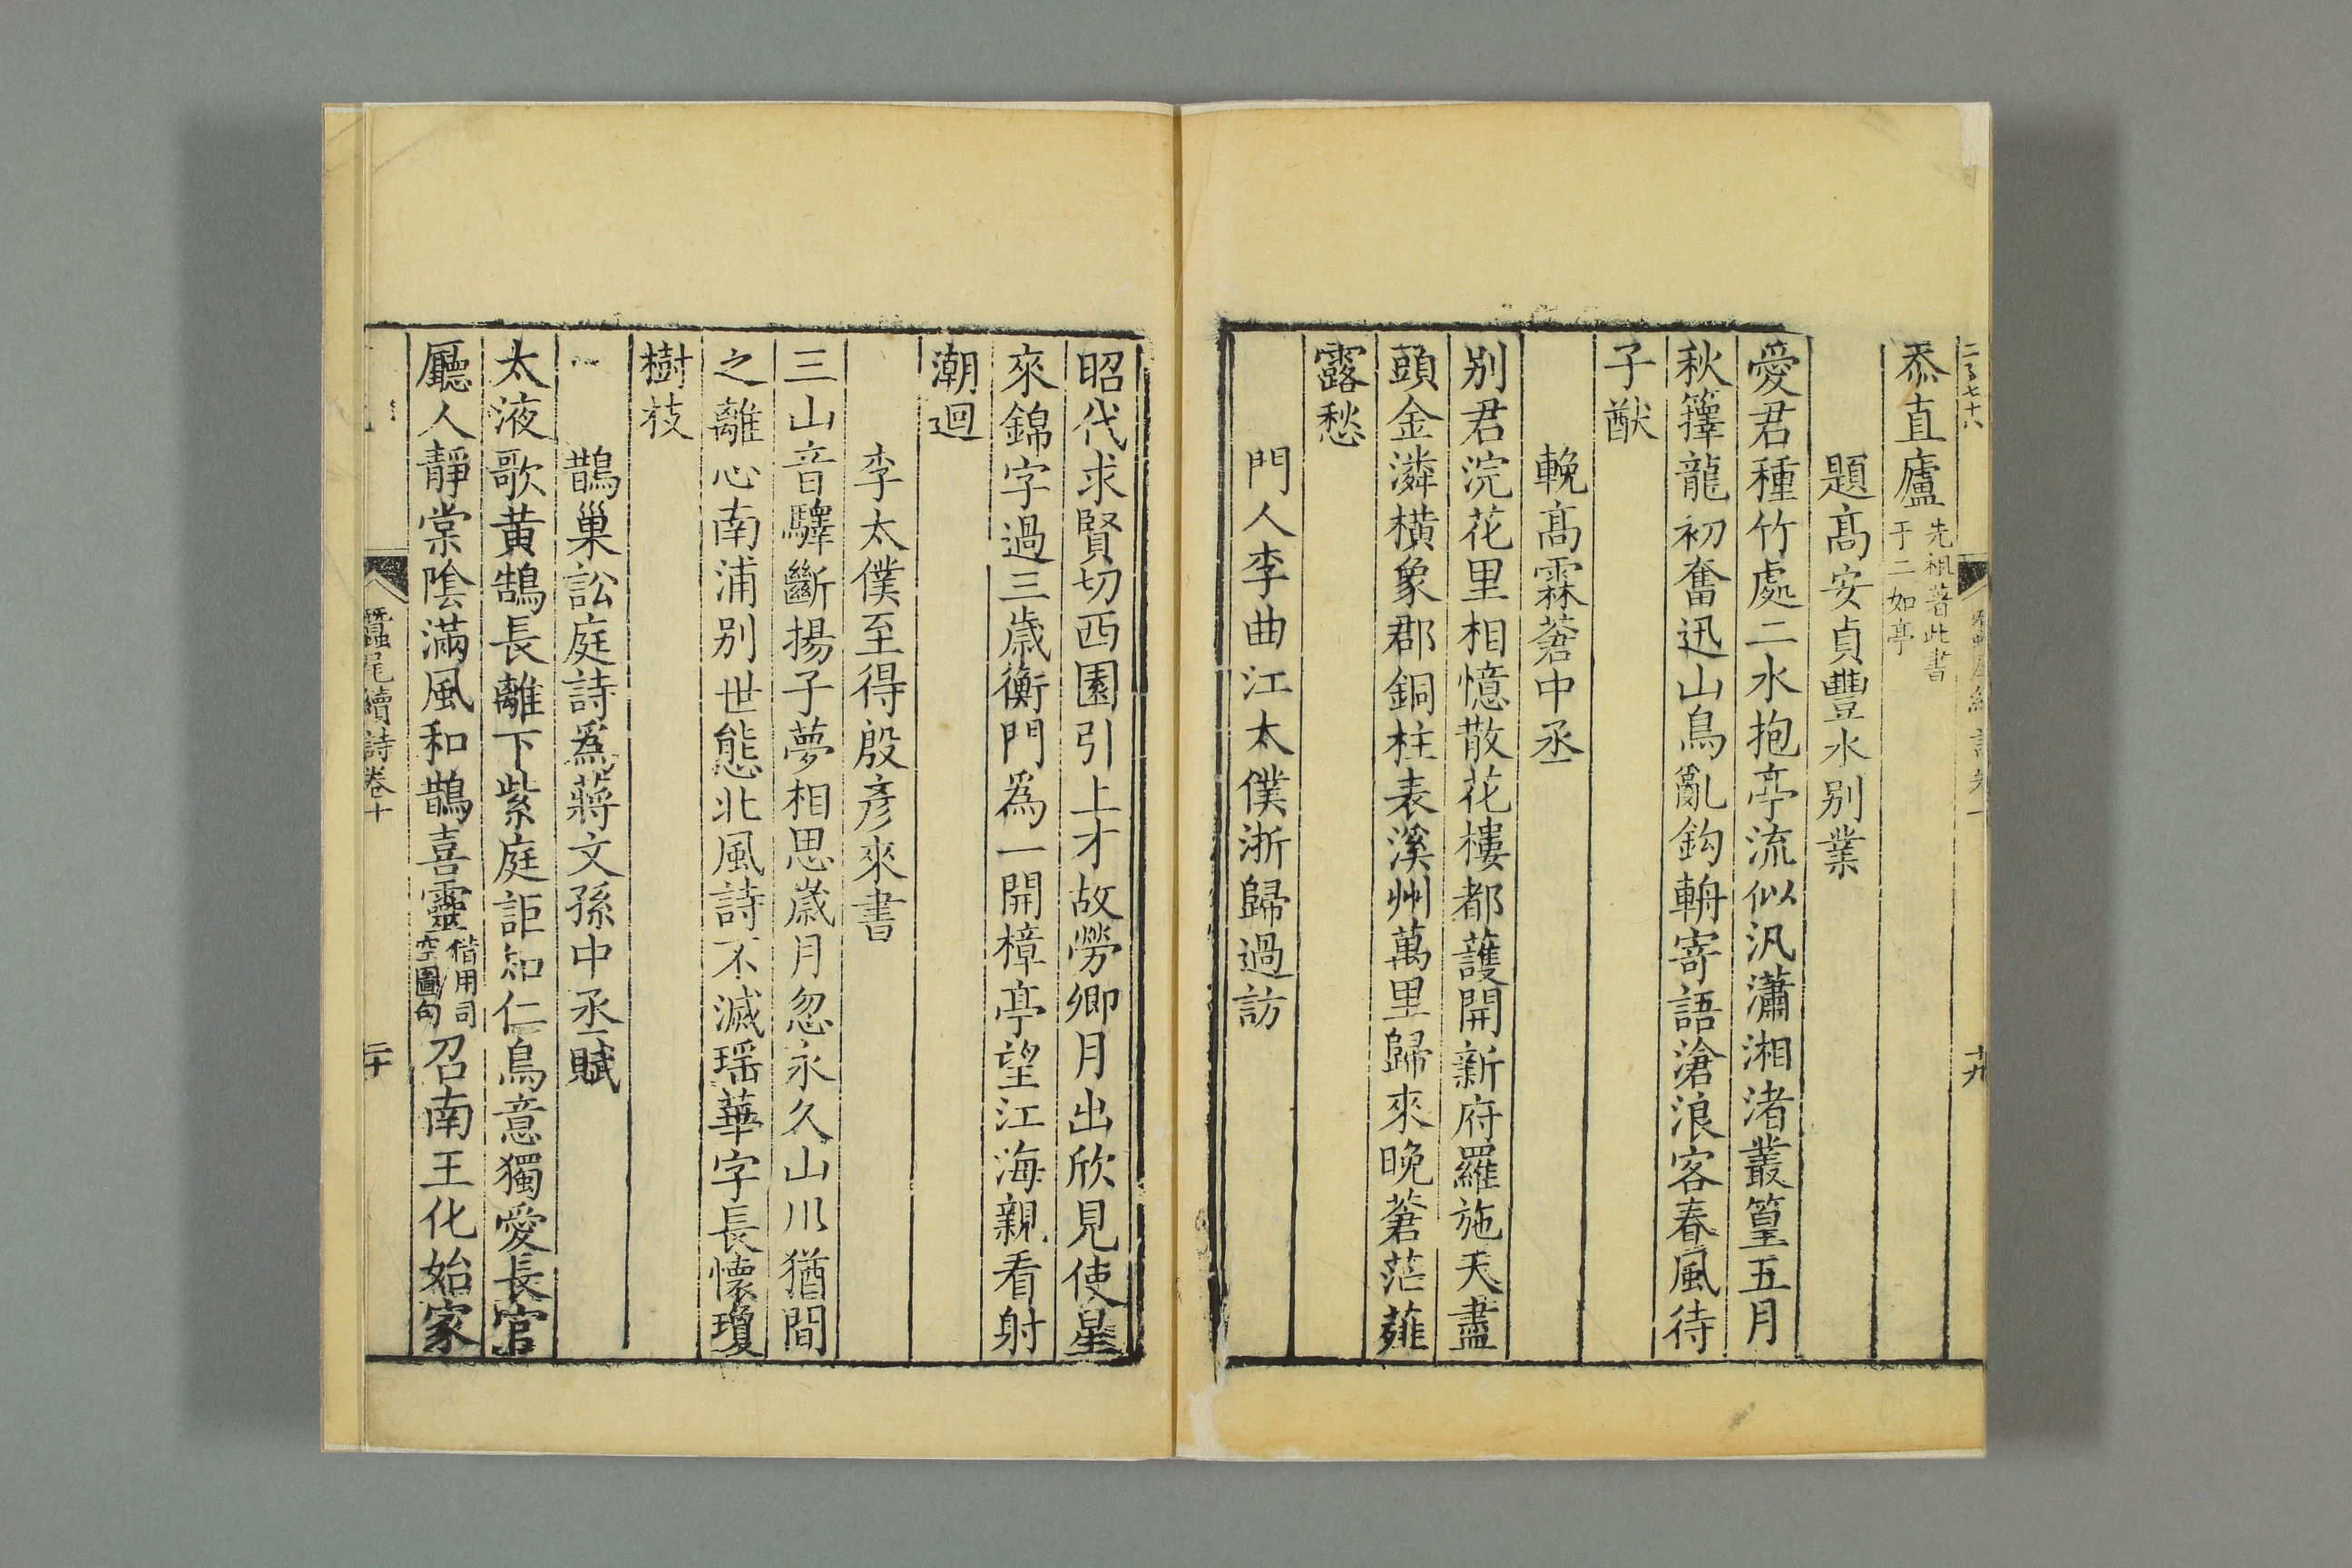 忝直廬先祖著此書于二如亭
題髙安貞豐水别業
愛君種竹處二水抱亭流似汎瀟湘渚叢篁五月
秋籜龍初奮迅山鳥亂鈎輈寄語滄浪客春風待
子猷
輓髙霖蒼中丞
别君浣花里相憶散花樓都護開新府羅施天盡
頭金潾横象郡銅柱表溪州萬里歸來晩蒼茫薤
露愁
門人李曲江太僕浙歸過訪
十九
昭代求賢切西園引上才故勞卿月出欣見使星
來錦字過三歲衡門爲一開樟亭望江海親看射
潮迴
李太僕至得殷彦來書
三山音驛斷揚子夢相思歲月忽永久山川猶間
之離心南浦别世態北風詩不滅瑶華字長懷瓊
樹枝
鵲巢訟庭詩爲蔣文孫中丞賦
太液歌黄鵠長離下紫庭詎知仁鳥意獨愛長官
廳人靜棠陰滿風和鵲喜靈偕用司空圖句召南王化始家
蠶尾續詩卷十
二十